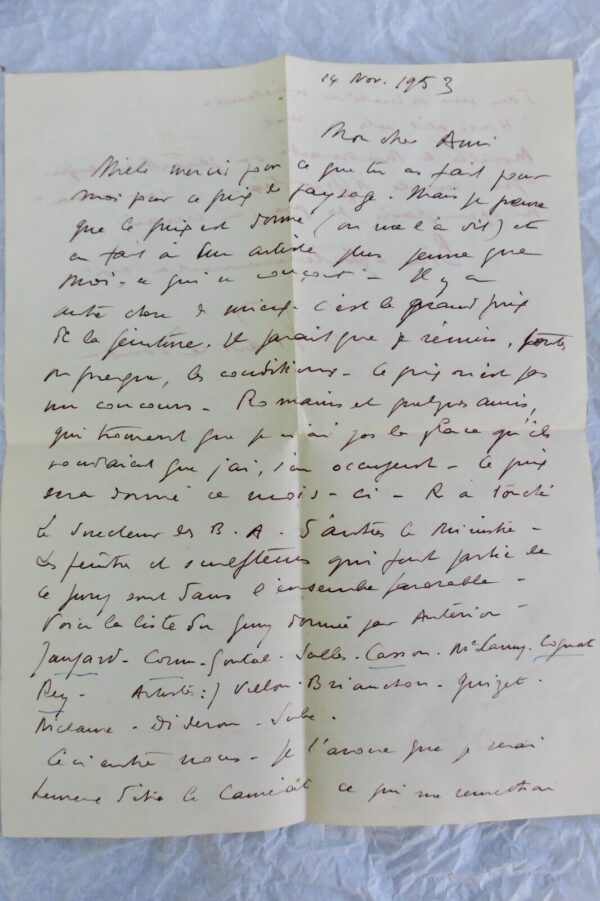 14 Nov. 1953
Mon cher Ami
Mille mercis pour ce que tu as fait pour
moi pour ce prix de paysage. Mais je pense
que le prix est donné (on me l'a dit) et
en fait à un artiste plus jeune que
moi - ce qui se conçoit - Il y a
autre chose de mieux. c'est le grand prix
de la peinture. Il parait que je réunis, toutes
ou presque, les conditions - Ce prix n'est pas
un concours - Romains et quelques amis,
qui trouvent que je n'ai pas la place qu'ils
voudraient que j'ai, s'en occupent - Ce prix
sera donné ce mois-ci - R a touché
le directeur des B. A. d'autres le Ministre -
Les peintres et sculpteurs qui font partie de
ce jury sont dans l'ensemble favorable -
Voici la liste du jury donnée par
Jaujard - Cornu - Goutal - Salles - Cassou - Mc Lamy - Cogniat
Rey - Artistes : J Villon - Brianchon -
Dideron -
Ceci entre nous - Je t'avoue que je serai
heureux d'être le lauréat ce qui me